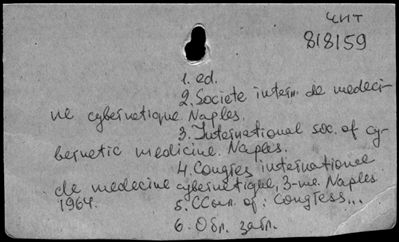 ЧИТ
818159
1. ed.
2. Societe intern. de medeci-
ne cybernetique. Naples.
3. International soc. of cy-
bernetic medicine. Naples.
4. Congres internationee
de medecine cybernetique, 3-me. Naples
1964.
5. CCon. of: Congless...
6. Обл. загл.